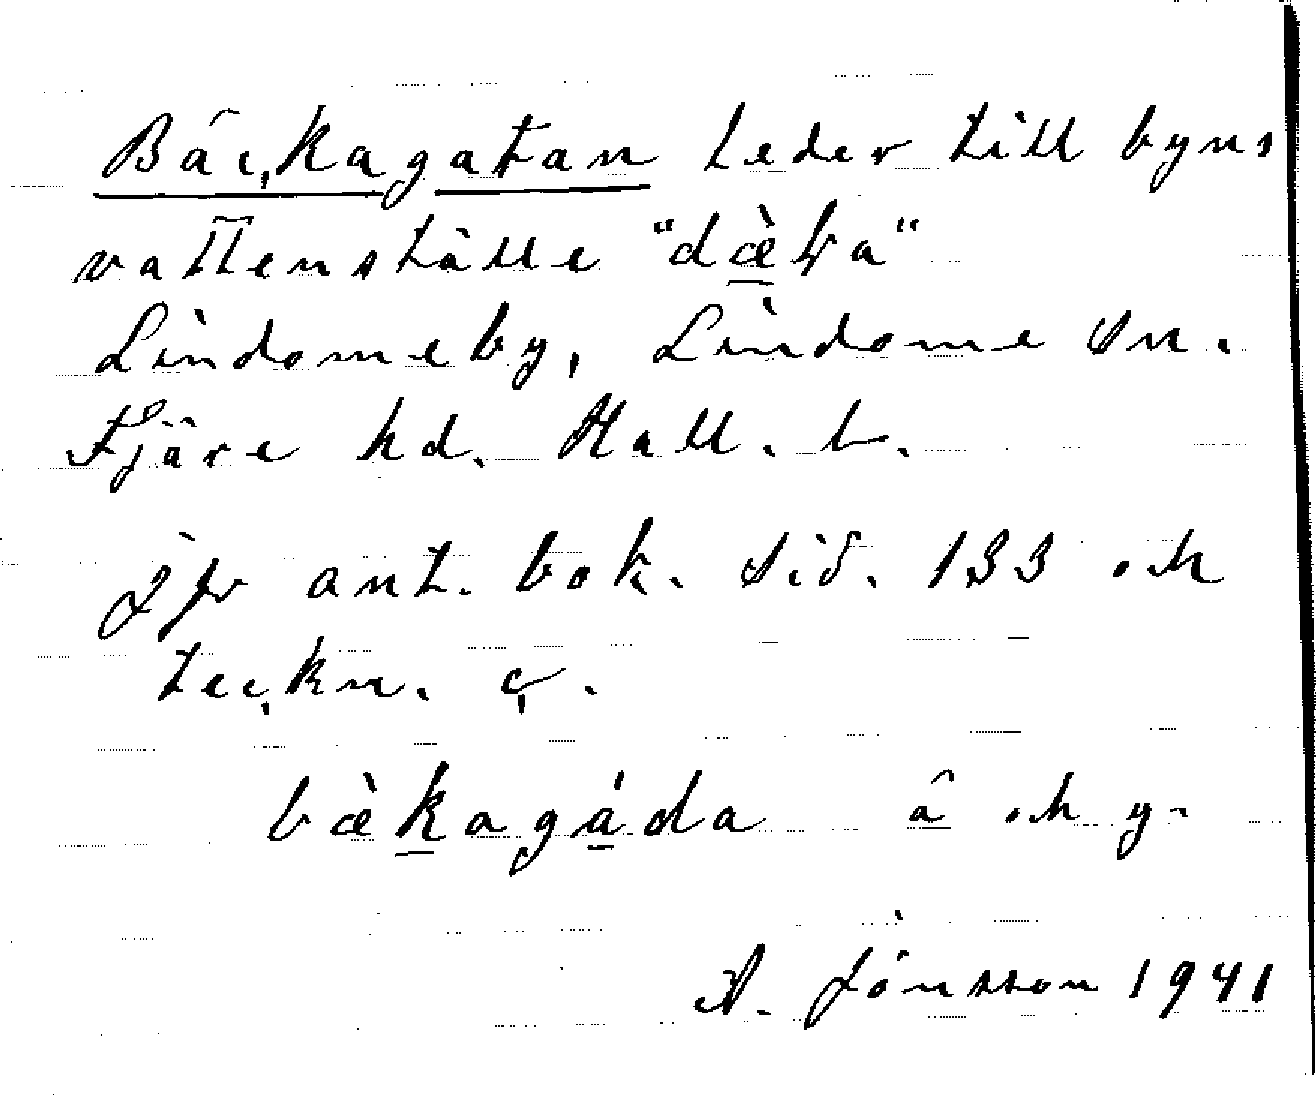 Bäckagatan leder till byns
vattenställe "dæ̀ka"
Lindomeby, Lindome sn.
Fjäre hd. Hall. l.
Jfr ant. bok. sid. 133 och
teckn. ç.
bæ̀kagáda â och y-
A. Jönsson 1941